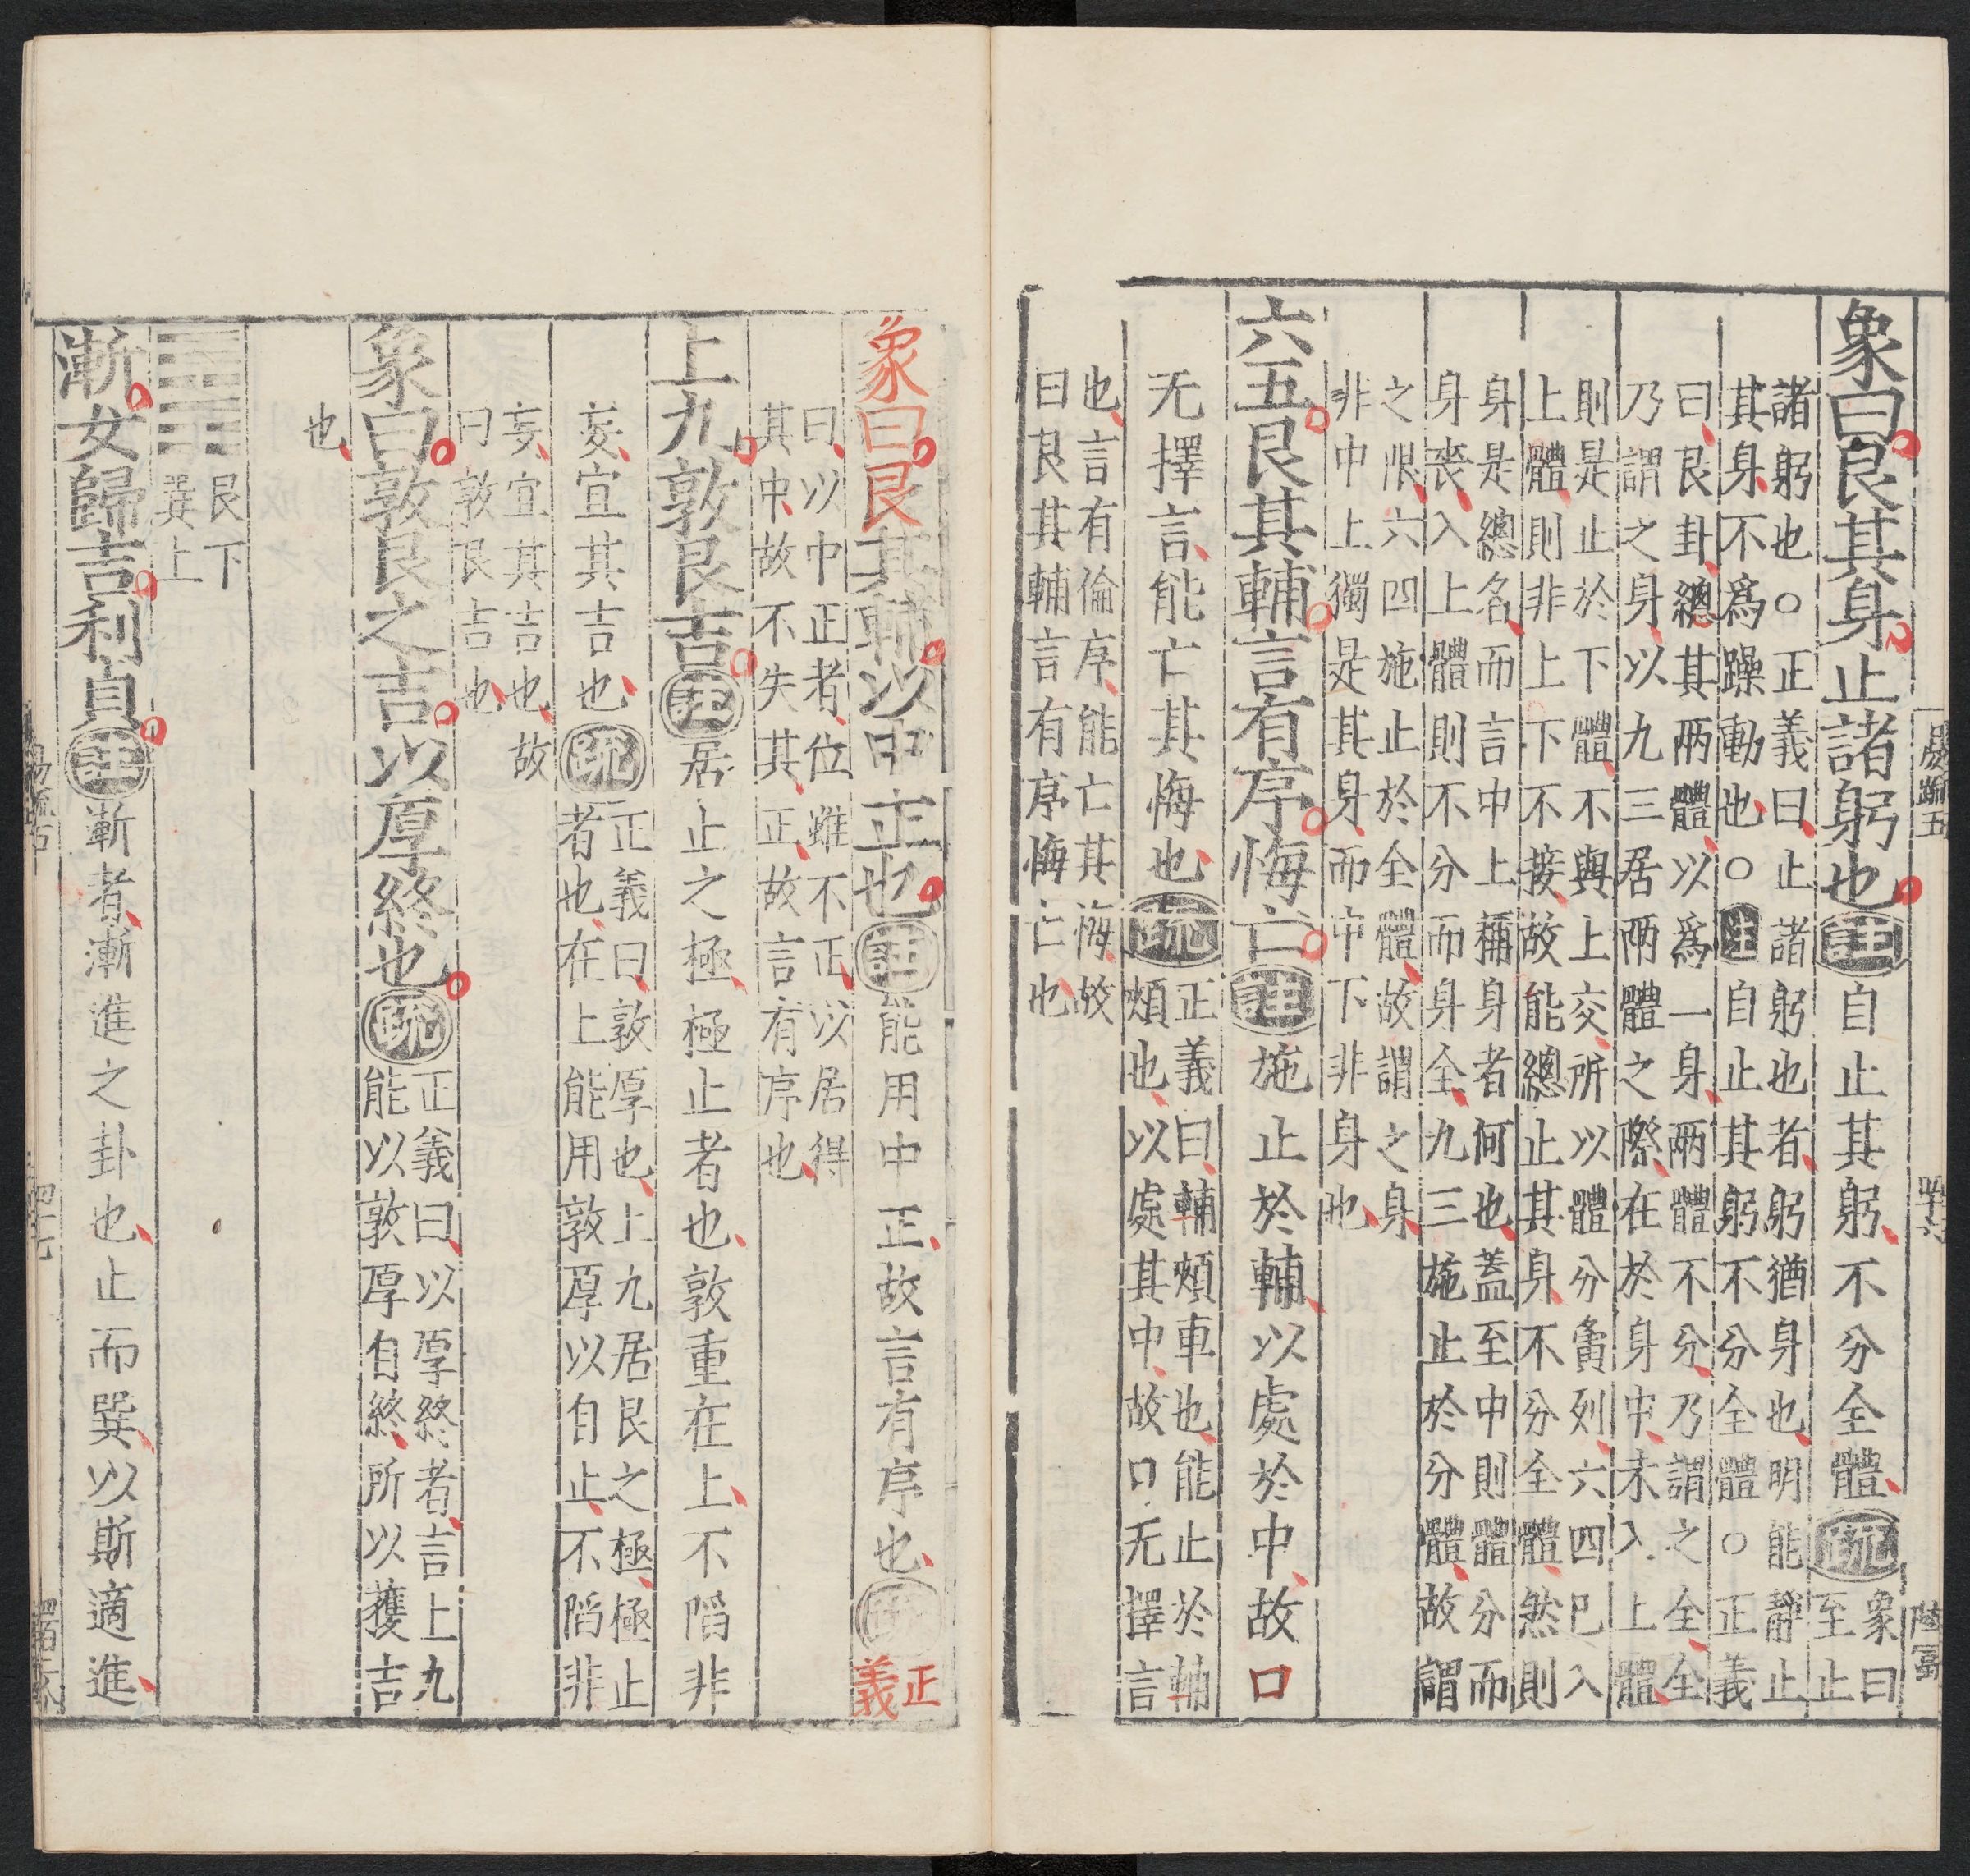 象曰艮其身止諸躬也註自止其躬不分全體疏象曰
至止
諸躬也○正義曰止諸躬也者躬猶身也明能靜止
其身不爲躁動也○註自止其躬不分全體○正義
曰艮卦總其兩體以爲一身兩體不分乃謂之全全
乃謂之身以九三居兩體之際在於身中未入上體
則是止於下體不與上交所以體分夤列六四已入
上體則非上下不接故能總止其身不分全體然則
身是總名而言中上稱身者何也蓋至中則體分而
身喪入上體則不分而身全九三施止於分體故謂
之限六四施止於全體故謂之身
非中上獨是其身而中下非身也
六五艮其輔言有序悔亡註施止於輔以處於中故口
无擇言能亡其悔也疏正義曰輔頰車也能止於輔
頰也以處其中故口无擇言
也言有倫序能亡其悔故
曰艮其輔言有序悔亡也
象曰艮其輔以中正也註能用中正故言有序也疏正
義
曰以中正者位雖不正以居得
其中故不失其正故言有序也
上九敦艮吉註居止之極極止者也敦重在上不陷非
妄宜其吉也疏正義曰敦厚也上九居艮之極極止
者也在上能用敦厚以自止不陷非
妄宜其吉也故
曰敦艮吉也
象曰敦艮之吉以厚終也疏正義曰以厚終者言上九
能以敦厚自終所以獲吉
也
艮下
巽上
漸女歸吉利貞註漸者漸進之卦也止而巽以斯適進